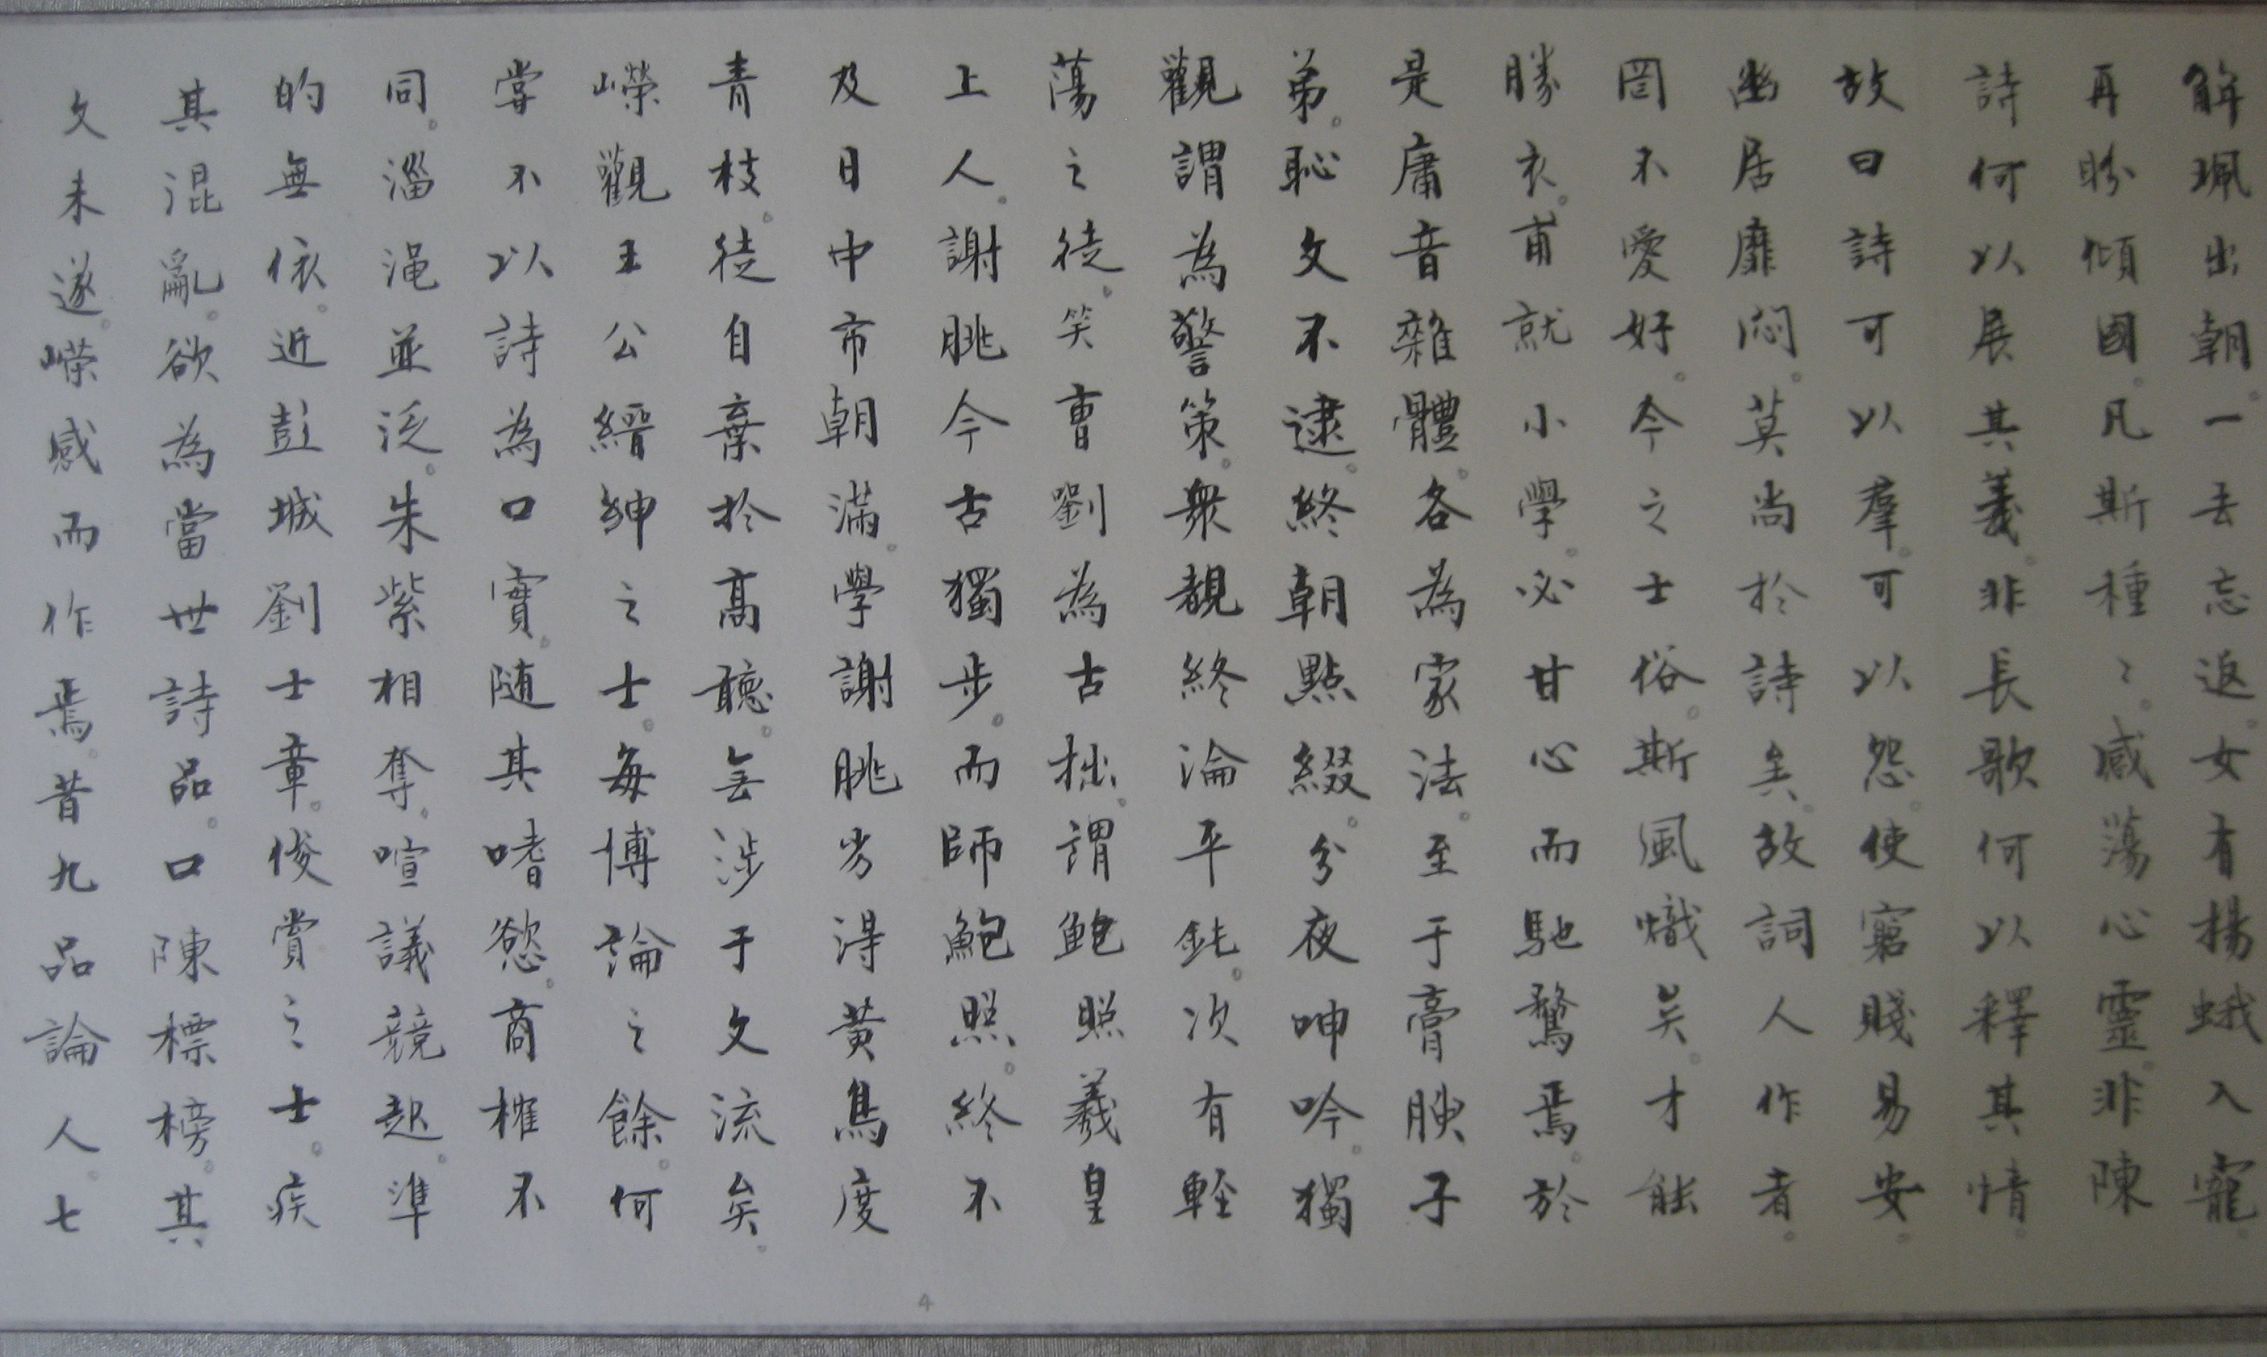 解珮出朝。一去忘返。女有揚蛾入寵。
再盼傾國。凡斯種〻。感蕩心靈。非陳
詩何以展其義。非長歌何以釋其情。
故曰詩可以羣。可以怨。使窮賤易安。
幽居靡悶。莫尚於詩矣。故詞人作者。
罔不愛好。今之士俗。斯風熾矣。才能
勝衣。甫就小學。必甘心而馳騖焉。於
是庸音雜體。各為家法。至于膏腴子
弟。恥文不逮。終朝點綴。分夜呻吟。獨
觀謂為警策。衆覩終淪平鈍。次有輕
蕩之徒。笑曹劉為古拙。謂鮑照羲皇
上人。謝朓今古獨步。而師鮑照。終不
及日中市朝滿。學謝朓劣得黃鳥度
青枝。徒自棄於高聽。無涉于文流矣。
嶸觀王公縉紳之士。每博論之餘。何
嘗不以詩為口實。随其嗜慾。商榷不
同。淄渑並泛。朱紫相奪。喧議競起。準
的無依。近彭城劉士章。俊賞之士。疾
其混亂。欲為當世詩品。口陳標榜。其
文未遂。嶸感而作焉。昔九品論人。七
4